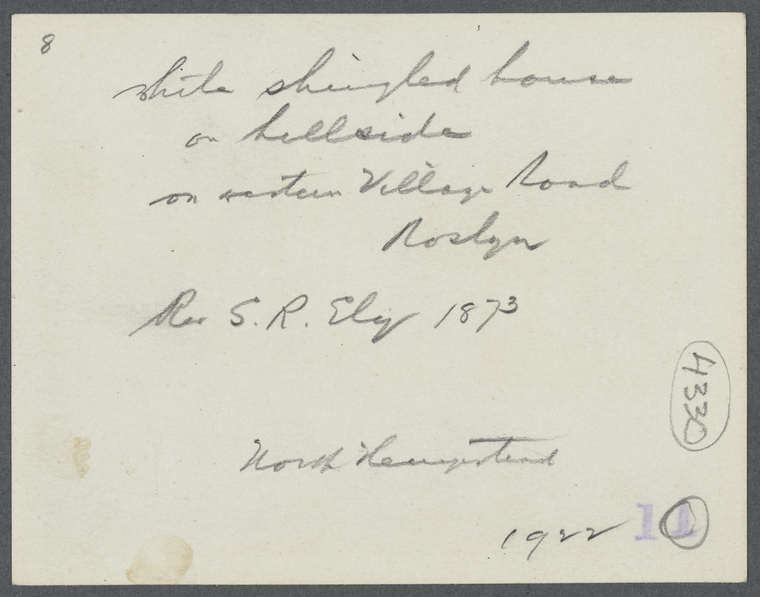 8
white shingled house
on hillside
on western Village Road
Roslyn
Rev S. R. Ely 1873
4330
North Hempstead
1922
11